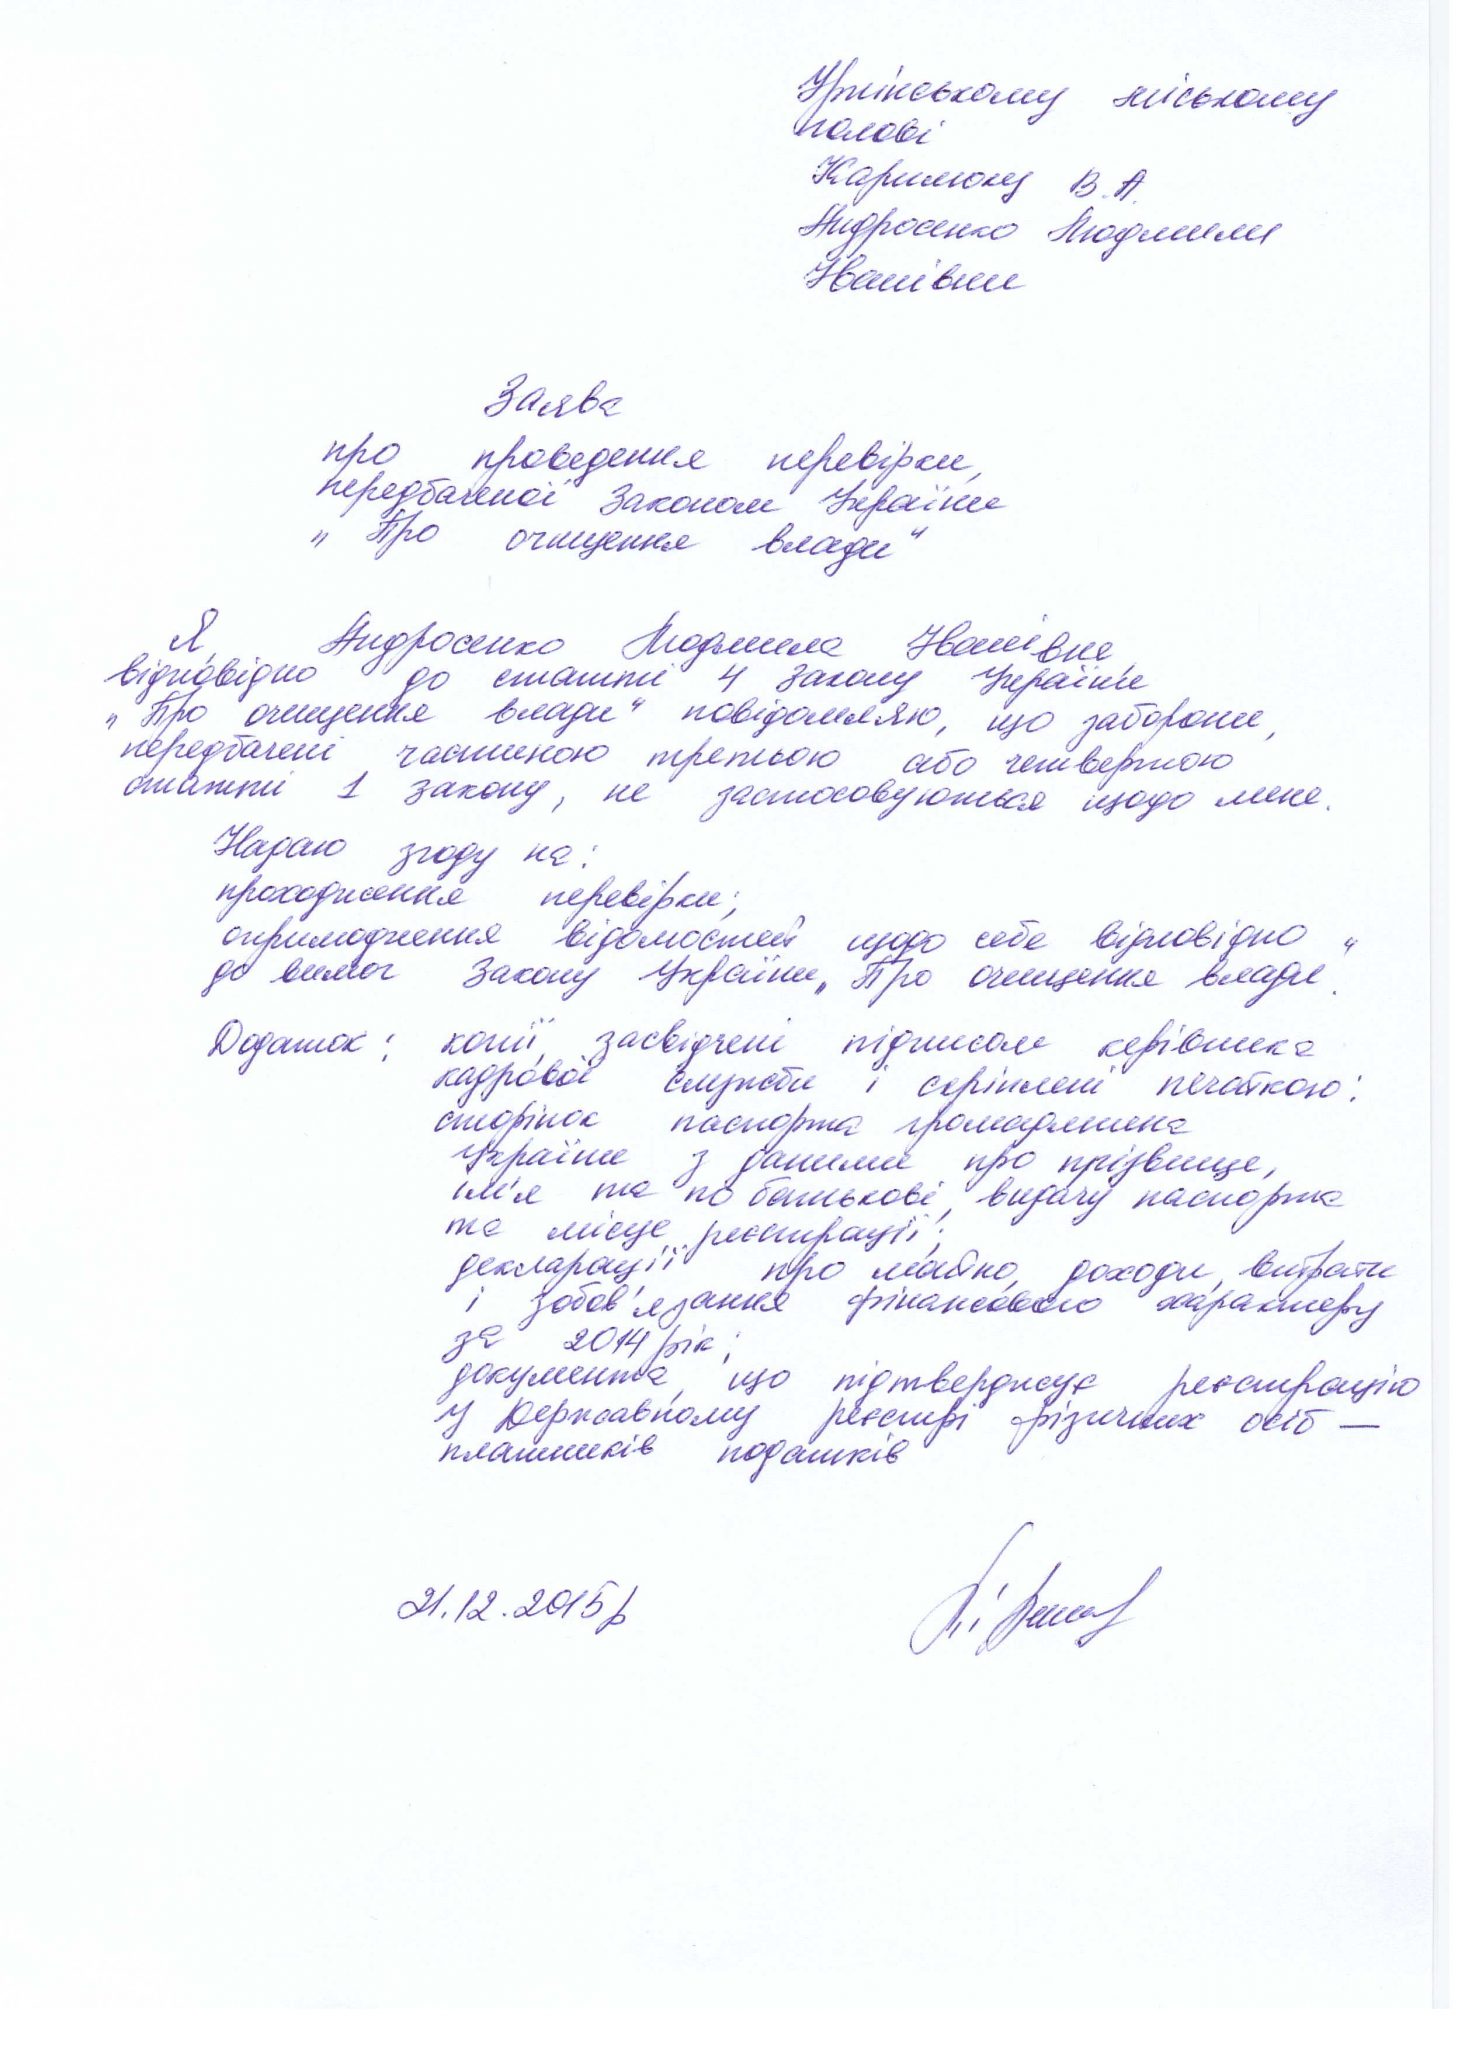 Ірпінському міському
голові
Карплюку В. А.
Андросенко Людмили
Іванівни
Заява
про проведення перевірки,
передбаченої Законом України
„Про очищення влади“
Я, Андросенко Людмила Іванівна
відповідно до статті 4 Закону України
„Про очищення влади“ повідомляю, що заборони,
передбачені частиною третьою або четвертою
статті 1 Закону, не застосовуються щодо мене.
Надаю згоду на:
проходження перевірки;
оприлюднення відомостей щодо себе відповідно
до вимог Закону України „Про очищення влади“.
Додаток: копії, засвідчені підписом керівника
кадрової служби і скріплені печаткою:
сторінок паспорта громадянина
України з даними про прізвище,
ім'я та по батькові, видачу паспорта
та місце реєстрації;
декларації про майно, доходи, витрати
і зобов'язання фінансового характеру
за 2014 рік;
документа, що підтверджує реєстрацію
у Державному реєстрі фізичних осіб —
платників податків
21.12.2015р